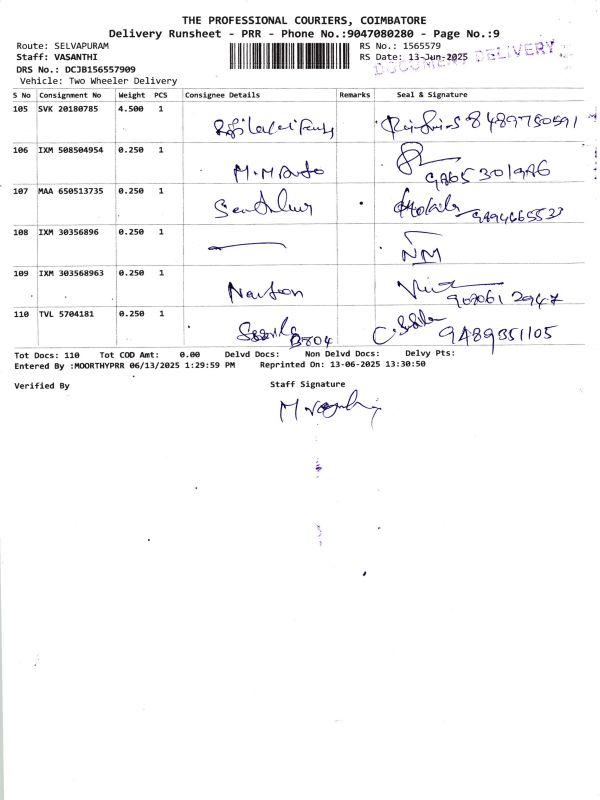 THE PROFESSIONAL COURIERS, COIMBATORE
Delivery Runsheet - PRR - Phone No.:9047080280 - Page No.:9
Route: SELVAPURAM
Staff: VASANTHI
DRS No.: DCJB156557909
Vehicle: Two Wheeler Delivery
RS No.: 1565579
RS Date: 13-Jun-2025
DOCUMENT DELIVERY
S No Consignment No Weight PCS Consignee Details Remarks Seal & Signature
105 SVK 20180785 4.500 1 8489750591
106 IXM 508504954 0.250 1 M.M Auto
107 MAA 650513735 0.250 1
108 IXM 30356896 0.250 1 NM
109 IXM 303568963 0.250 1
110 TVL 5704181 0.250 1 9489351105
Tot Docs: 110 Tot COD Amt: 0.00 Delvd Docs: Non Delvd Docs: Delvy Pts:
Entered By :MOORTHYPRR 06/13/2025 1:29:59 PM Reprinted On: 13-06-2025 13:30:50
Verified By Staff Signature